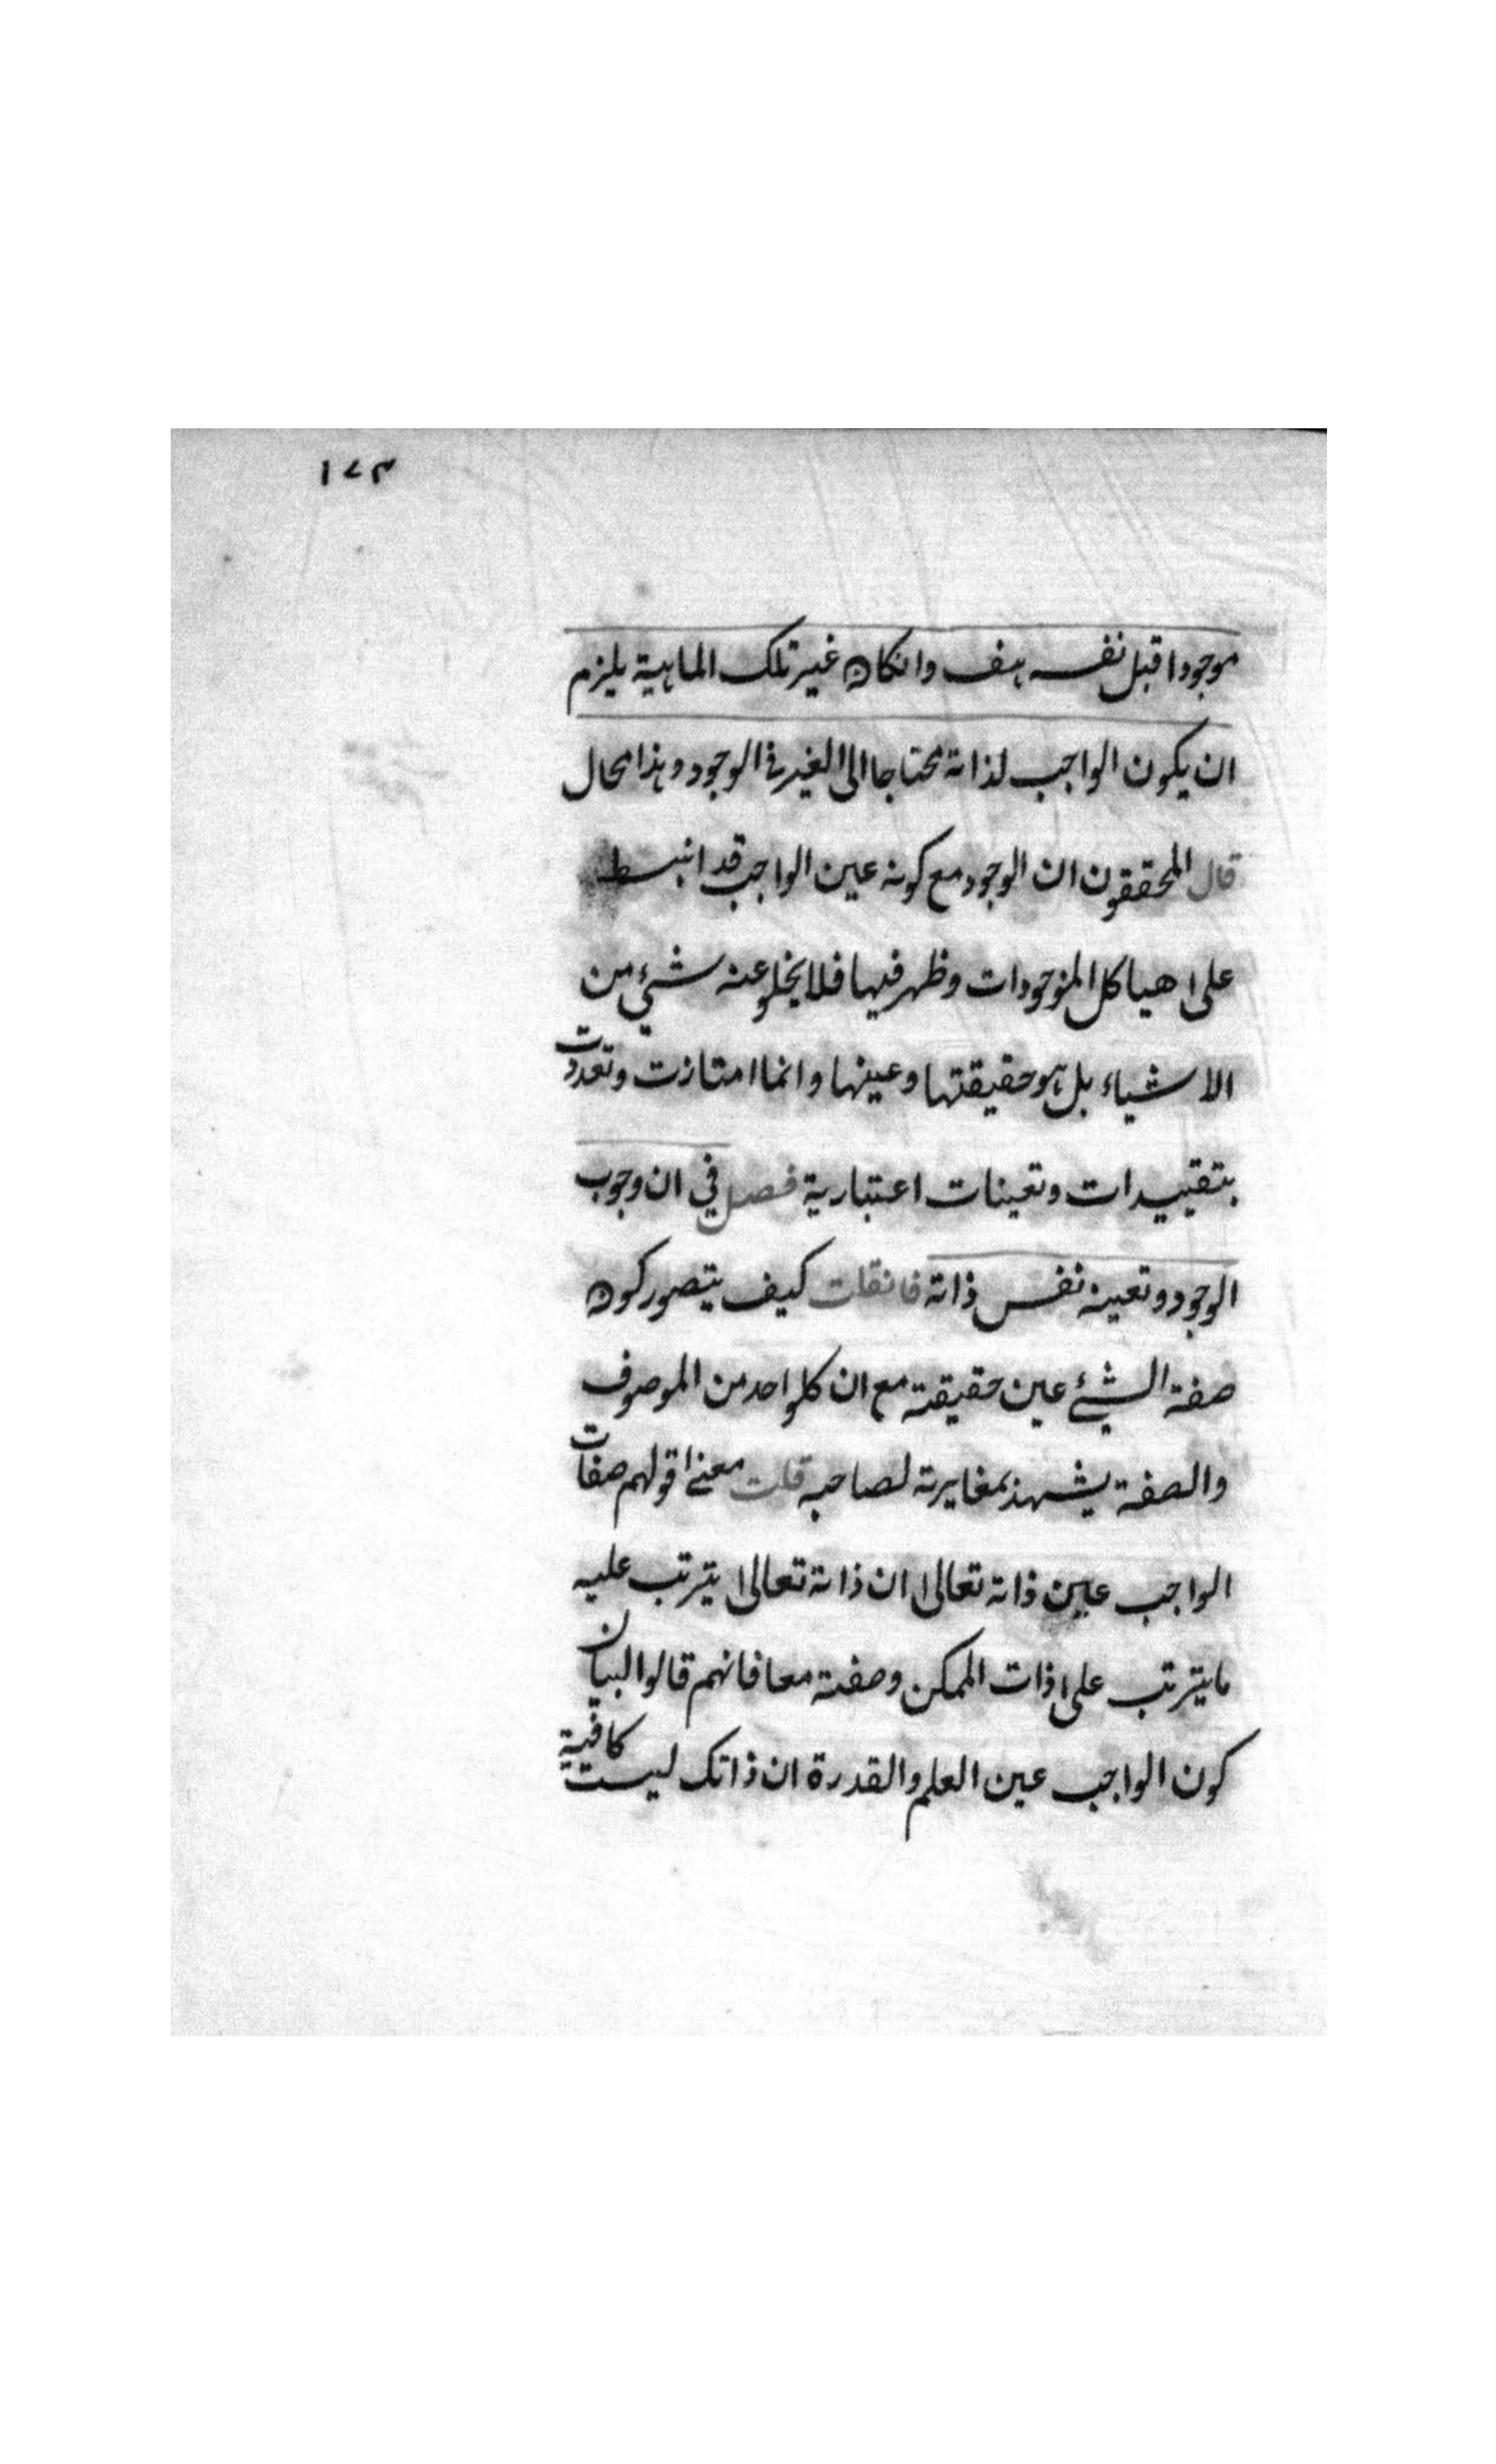 ١٧٣
موجودا قبل نفسه هف وانكان غير تلك الماهية يلزم
ان يكون الواجب لذاته محتاجا الى الغير في الوجود وهذا محال
قال المحققون ان الوجود مع كونه عين الواجب قد انبسط
على هياكل الموجودات وظهر فيها فلا يخلو عنه شيء من
الاشياء بل هو حقيقتها وعينها وانما امتازت وتعددت
بتقييدات وتعينات اعتبارية فصل في ان وجوب
الوجود وتعينه نفس ذاته فانقلت كيف يتصور كون
صفة الشيء عين حقيقته مع ان كلواحد من الموصوف
والصفة يشهد بمغايرته لصاحبه قلت معنى قولهم صفات
الواجب عين ذاته تعالى ان ذاته تعالى يترتب عليه
ما يترتب على ذات الممكن وصفته معا فانهم قالوا لبيان
كون الواجب عين العلم والقدرة ان ذاتك ليست كافية